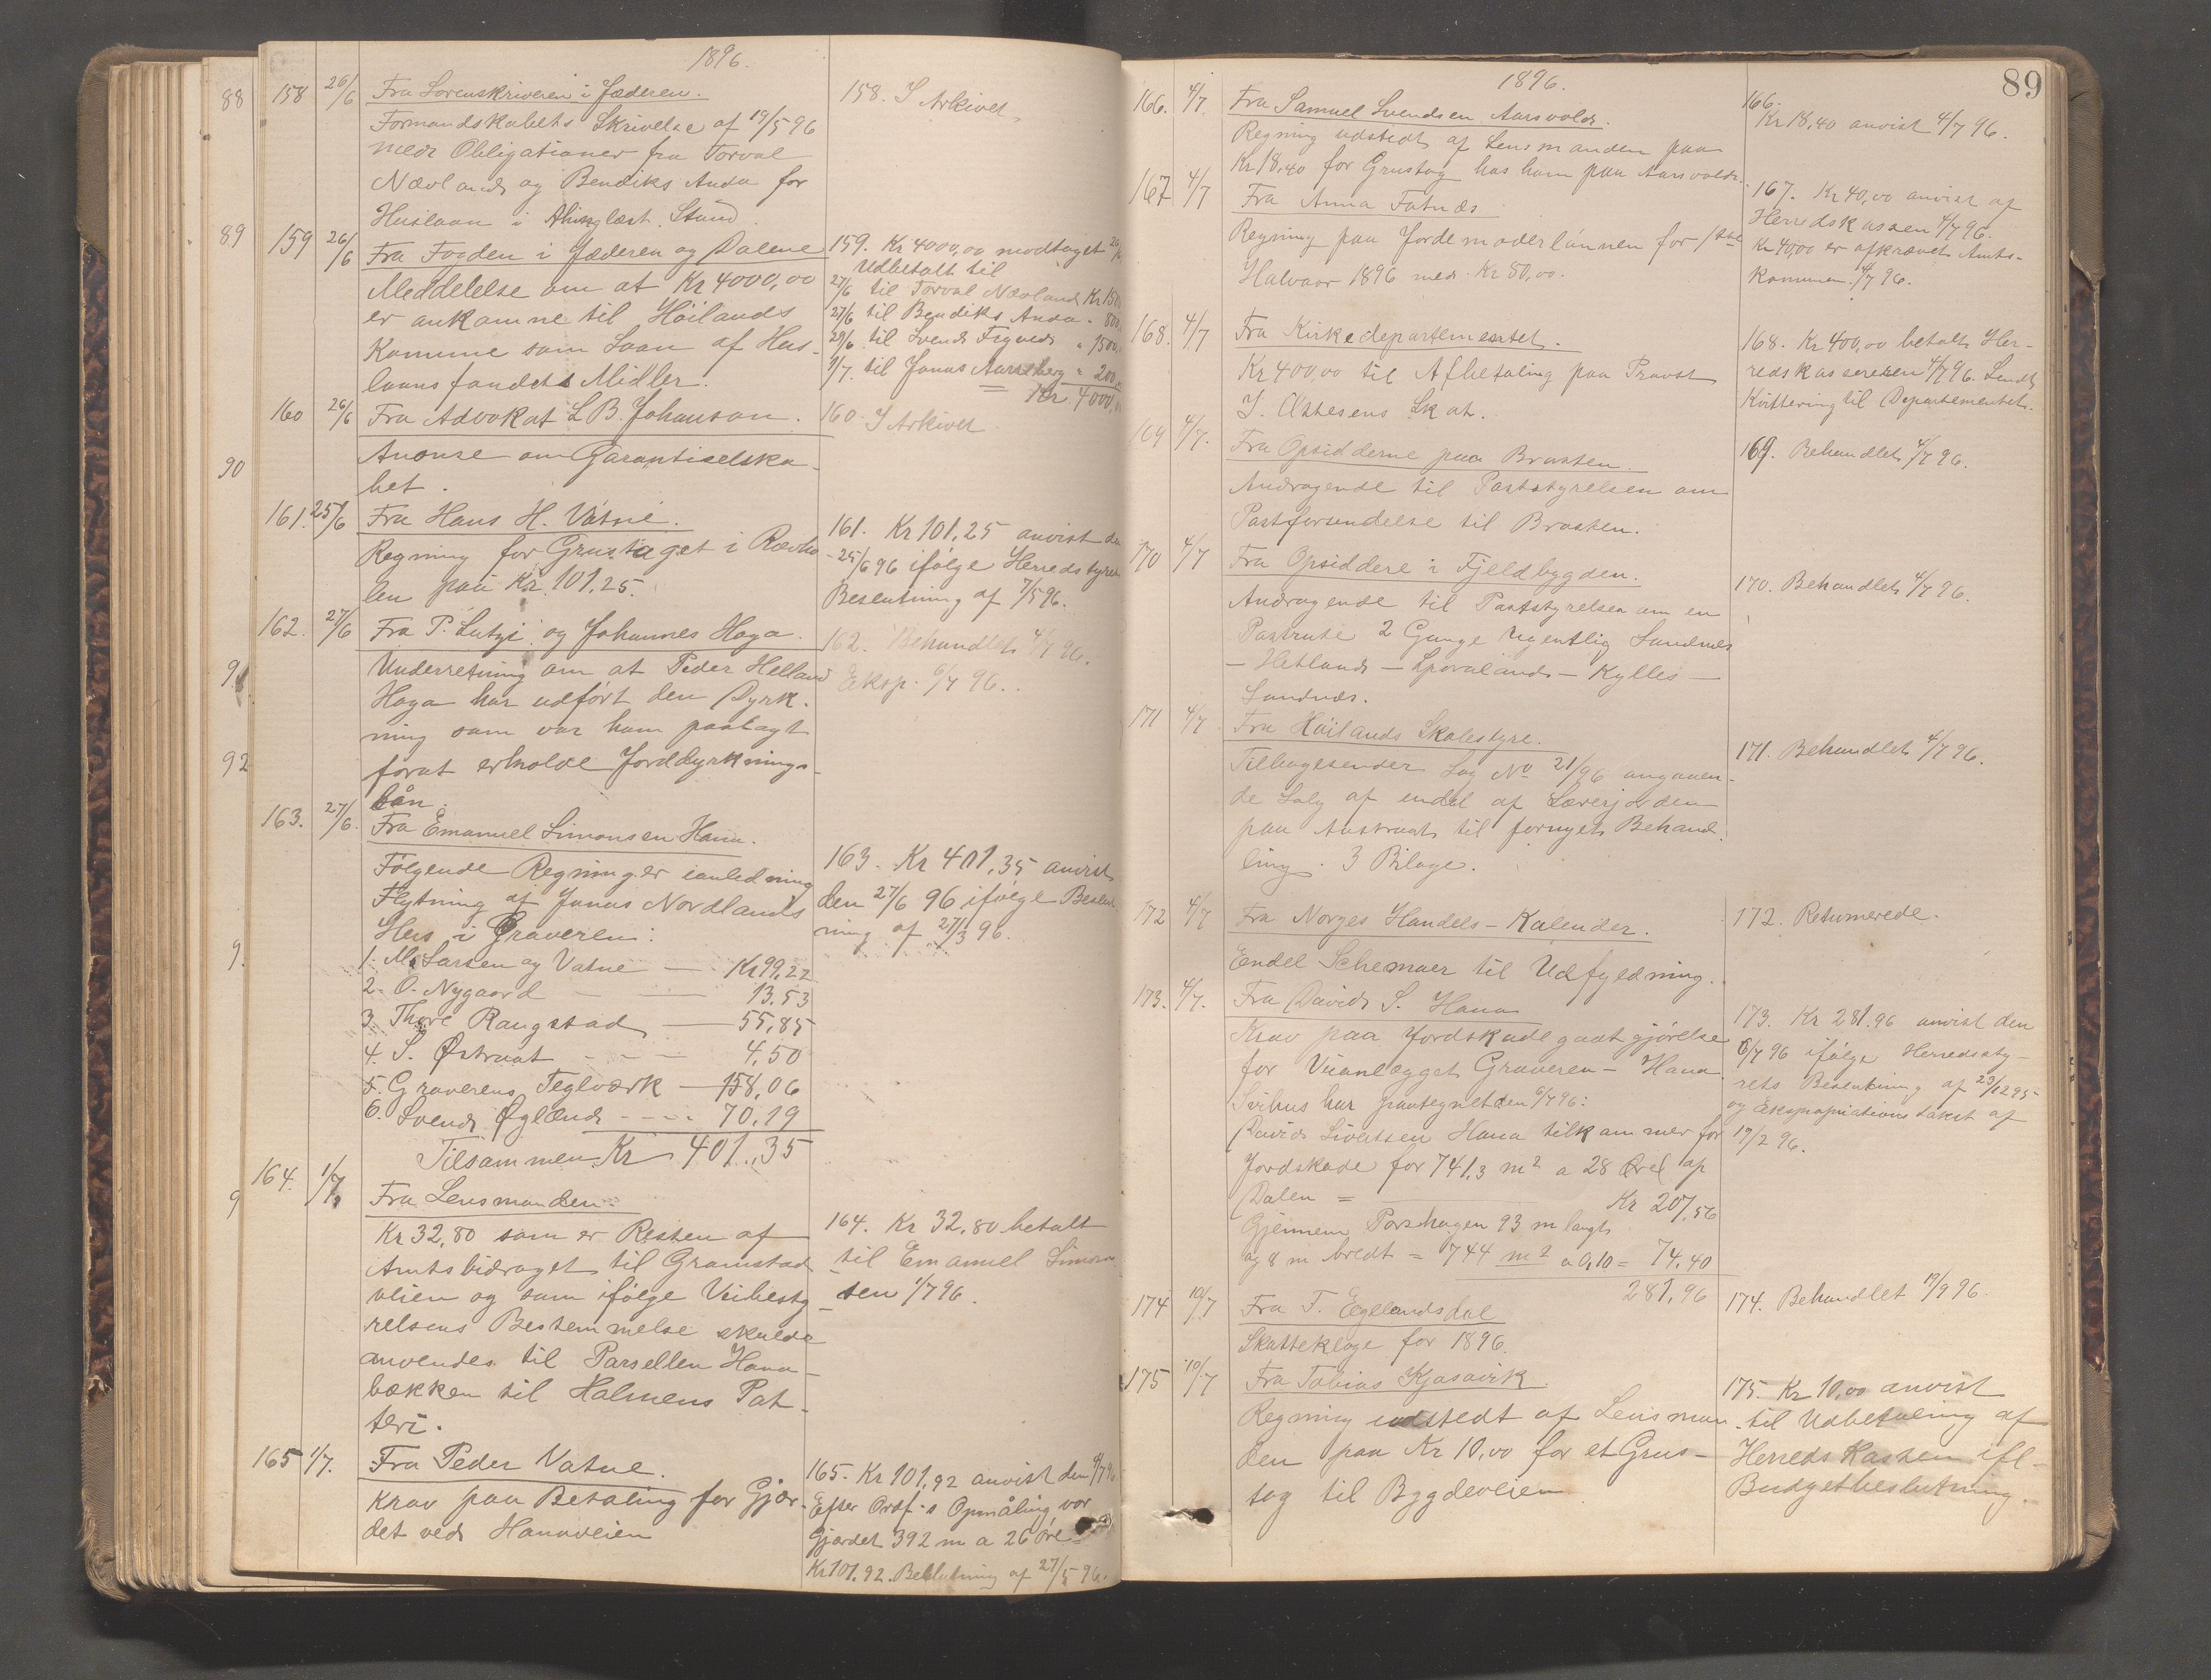 1896.
158 26/6 Fra Sorenskriveren i Jæderen.
Formandskabets Skrivelse af 19/5 96
med Obligationer fra Torval
Nævland og Bendiks Anda for
Huslaan i thinglæst Stand.
158. I Arkivet
159 26/6 Fra Fogden i Jæderen og Dalene
Meddelelse om at Kr 4000,00
er ankomne til Höilands
Komune som Laan af Hus-
laansfondets Midler.
159. Kr 4000,00 modtaget 26/6
Udbetalt til
27/6 til Torval Nævland Kr 1500
27/6 til Bendiks Anda - 800,
29/6 til Svend Figved " 1500,
1/7. til Jonas Aarsberg " 200,
Kr 4000,
160 26/6 Fra Advokat L B. Johanson.
Anonse om Garantiselska-
bet.
160. I Arkivet
161. 25/6 Fra Hans H. Vatne.
Regning for Grustaget i Rævho-
len paa Kr. 101,25.
161. Kr 101,25 anvist den
25/6 96 ifölge Herredstyrets
Beslutning af 7/5 96.
162. 27/6 Fra P. Lutsi og Johannes Hoga.
Underretning om at Peder Helland
Hoga har udfört den Dyrk-
ning som var ham paalagt
forat erholde Jorddyrknings-
lån.
162. Behandlet 4/7 96.
Eksp. 6/7 96.
163. 27/6 Fra Emanuel Simonsen Hana.
Fölgende Regninger ianledning
Flytning af Jonas Nordlands
Hus i Graveren:
1. M. Larsen og Vatne — Kr 99,22
2. O. Nygaard — 13,53
3. Thore Raugstad — 55,85
4. S. Østraat - - - 4,50
5. Graverens Teglværk — 158,06
6. Svend Øglænd - - - 70,19
Tilsammen Kr 401,35
163. Kr 401,35 anvist
den 27/6 96 ifölge Beslut-
ning af 27/3 96.
164. 1/7. Fra Lensmanden.
Kr 32,80 som er Resten af
Amtsbidraget til Gramstad
veien og som ifölge Veibesty-
relsens Bestemmelse skulde
anvendes til Parsellen Hana-
bækken til Halmens Pot-
teri.
164. Kr 32,80 betalt
til Emanuel Simon-
sen 1/7 96.
165 1/7. Fra Peder Vatne.
Krav paa Betaling for Gjær-
det ved Hanaveien
165. Kr 101,92 anvist den 4/7 96
Efter Ordf-s Opmåling var
Gjærdet 392 m a 26 Øre =
Kr 101.92. Beslutning af 27/5 96.
88
89
90
91
92
9.
9
89
1896.
166. 4/7 Fra Samuel Svendsen Aarsvold.
Regning udstedt af Lensmanden paa
Kr 18,40 for Grustag hos ham paa Aarsvold.
166.
Kr 18,40 anvist 4/7 96.
167 4/7 Fra Anna Fatnæs
Regning paa Jordemoderlönnen for 1ste
Halvaar 1896 med Kr 80,00.
167. Kr 40,00 anvist af
Herredskassen 4/7 96.
Kr 40,00 er afkrævet Amts-
kommunen 4/7 96.
168. 4/7 Fra Kirkedepartementet.
Kr 400,00 til Afbetaling paa Provst
J. Ottesens Skat.
168. Kr 400,00 betalt Her-
redskassereren 4/7 96. Sendt
Kvittering til Departementet.
169 4/7. Fra Opsidderne paa Brusten.
Andragende til Poststyrelsen om
Postforsendelse til Brusten.
169. Behandlet 4/7 96.
170 4/7 Fra Opsiddere i Fjeldbygden.
Andragende til Poststyrelsen om en
Postrute 2 Gange ugentlig Sandnes
— Hetland — Sporaland — Kylles —
Sandnæs.
170. Behandlet 4/7 96.
171 4/7 Fra Höilands Skolestyre.
Tilbagesender Sag No 21/96 angaaen-
de Salg af endel af Lærerjorden
paa Austraat til fornyet Behand-
ling. 3 Bilage.
171. Behandlet 4/7 96.
172 4/7 Fra Norges Handels-Kalender.
Endel Schemaer til Udfyldning.
172. Returnerede.
173. 4/7. Fra David S. Hana
Krav paa Jordskadegodtgjörelse
for Veianlægget Graveren - Hana
Svihus har paategnet den 6/7 96:
David Sivertsen Hana tilkommer for
Jordskade for 741,3 m2 a 28 Øre af
Dalen = Kr 207,56
Gjennem Porshagen 93 m langt
og 8 m bredt = 744 m2 a 0,10 = 74,40
281,96
173. Kr 281.96 anvist den
6/7 96 ifölge Herredssty-
rets Beslutning af 23/12 95
og Ekspropriations takst af
19/2 96.
174 10/7 Fra T. Egelandsdal
Skatteklage for 1896.
174. Behandlet 19/9 96.
175 10/7 Fra Tobias Kjosavik.
Regning udstedt af Lensman-
den paa Kr 10,00 for et Grus-
tag til Bygdeveien
175. Kr 10,00 anvist
til Udbetaling af
Herredskassen ifl-
Budgetbeslutning.